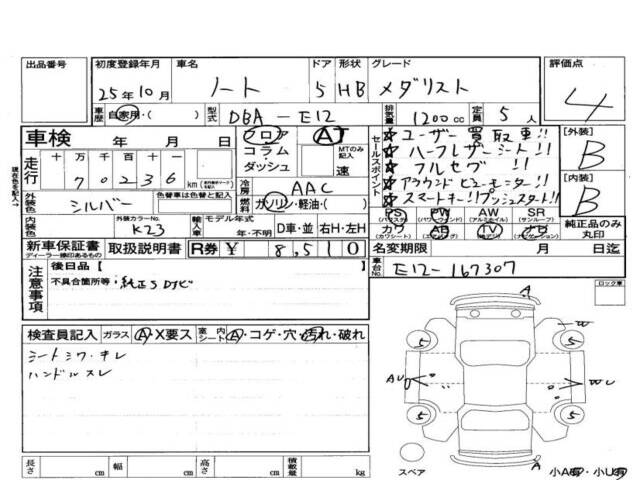 出品番号 初度登録年月 車名 ドア 形状 グレード 評価点
25年10月 ノート 5 HB メダリスト 4
車歴 自家用・( ) 型式 DBA-E12 排気量 1200cc 定員 5人
車検 年 月 日 フロア コラム・ダッシュ AT MTのみ記入 速
走行 十万千百十一 70236 km
セールスポイント
☆ユーザー買取車!!
☆ハーフレザーシート!!
☆フルセグ!!
☆アラウンドビューモニター!!
☆スマートキー!!プッシュスタート!!
[外装] B
[内装] B
冷房 AAC
燃料 ガソリン・軽油・( )
外装色 シルバー 色替車は色替と記入
内装色 外装カラーNo. K23 輸入車 モデル年式 年・不明 D車・並 右H・左H
PS PW AW SR
(パワステ) (パワーウィンド) (アルミホイル) (サンルーフ)
カワ AB TV ナビ
(カワシート) (エアバッグ) (テレビ) (ナビゲーション)
純正品のみ丸印
新車保証書 ディーラー捺印あるもの 取扱説明書 R券 ¥ 8,510
名変期限 月 日迄
車台No. E12-167307
注意事項
後日品[ ]
不具合箇所等:純正SDナビ
ロック車
検査員記入 ガラス A・X要ス 室内シート A・コゲ・穴・汚れ・破れ
シートシワ・キレ
ハンドルスレ
A
W
5 5
AU WU
5 5
A
スペア
小A有・小U有
長さ cm 幅 cm 高さ cm 積載量 kg
現在色を記入→